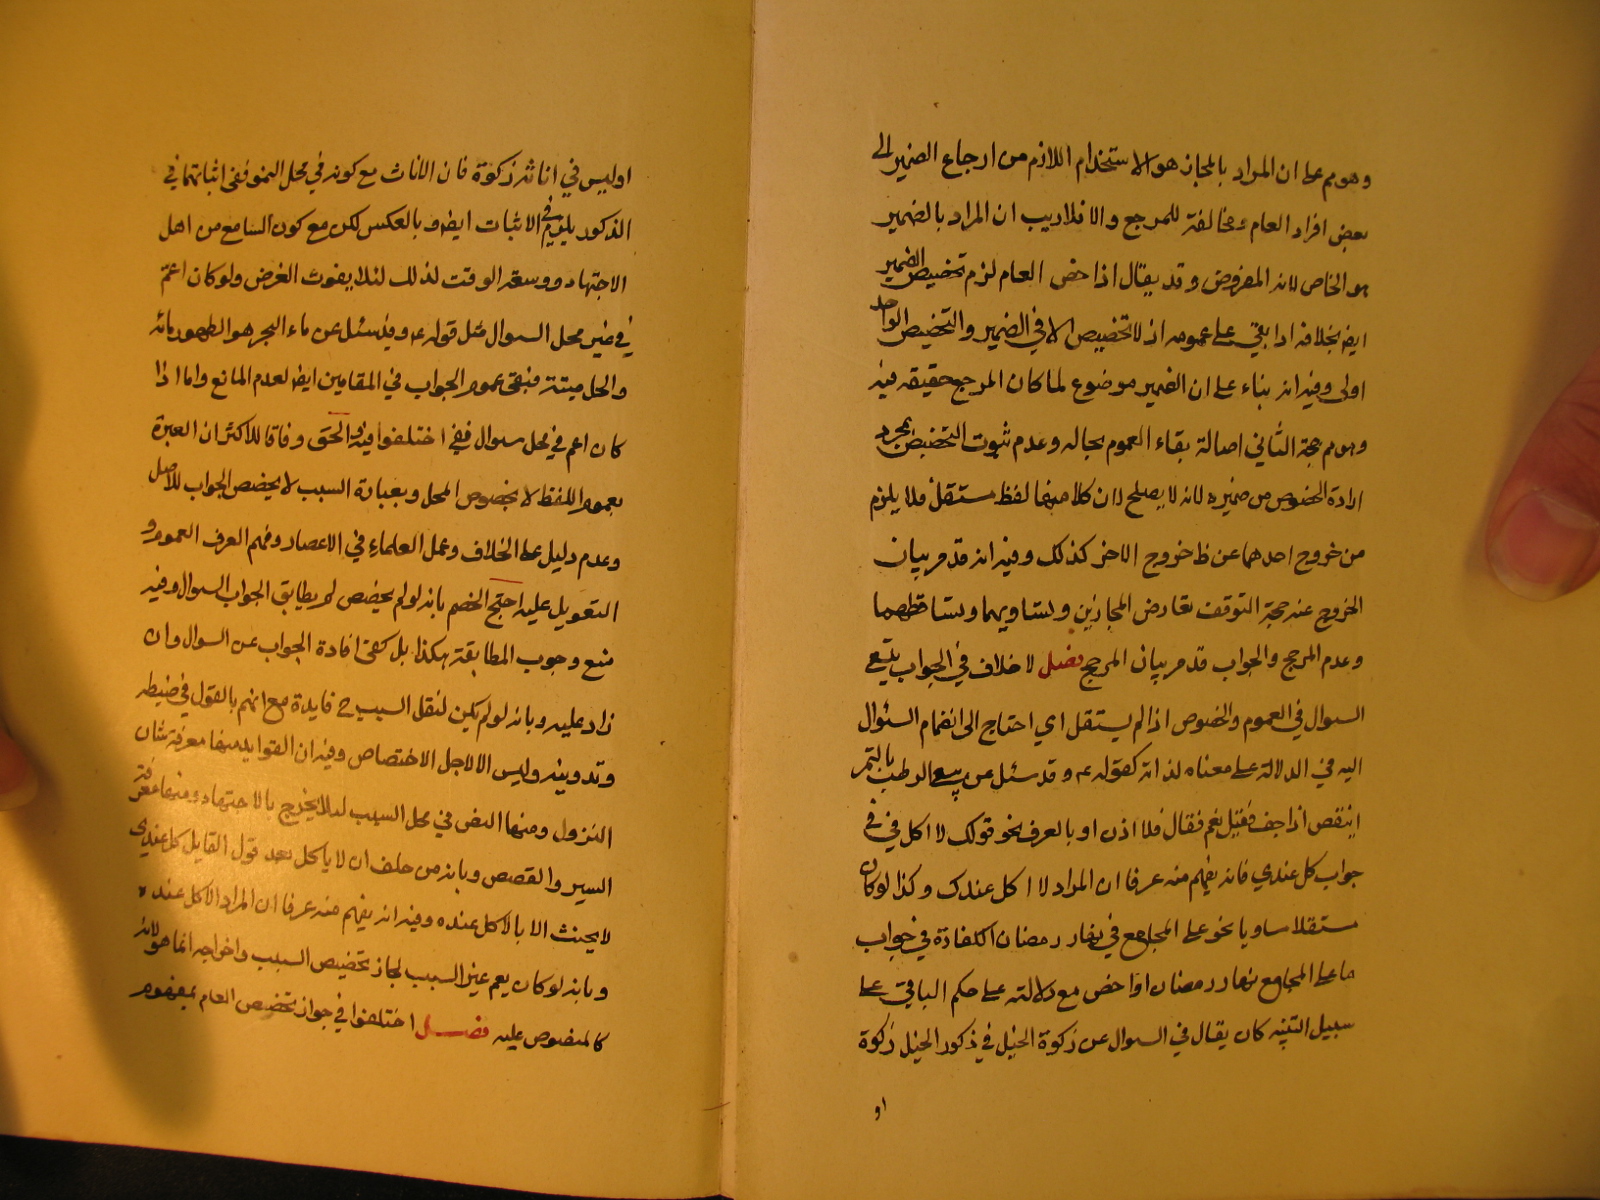 وهو مم على ان المراد بالمجاز هو الاستخدام اللازم من ارجاع الضمير الى
بعض افراد العام ومخالفته للمرجع والا فلا ريب ان المراد بالضمير
هو الخاص لانه المفروض وقد يقال اذا خص العام لزم تخصيص الضمير
ايضا بخلافه اذا بقي على عمومه اذ لا تخصيص الا في الضمير والتخصيص الواحد
اولى وفيه انه بناء على ان الضمير موضوع لما كان المرجع حقيقه فيه
وهو مم حجة الثاني اصالة بقاء العموم بحاله وعدم ثبوت التخصيص بمجرد
ارادة الخصوص من ضميره لانه لا يصلح لان كلا منهما لفظ مستقل فلا يلزم
من خروج احدهما عن ظ خروج الاخر كذلك وفيه انه قد مر بيان
الخروج عنه حجة التوقف تعارض المجازين وتساويهما وتساقطهما
وعدم المرجح والجواب قد مر بيان المرجح فصل لا خلاف في الجواب يتبع
السوال في العموم والخصوص اذا لم يستقل اي احتاج الى انضمام السئوال
اليه في الدلالة على معناه لذاته كقوله ع وقد سئل عن بيع الرطب بالتمر
اينقص اذا جف فقيل نعم فقال فلا اذن او بالعرف نحو قولك لا اكل في في
جواب كل عندي فانه يفهم منه عرفا ان المراد لا اكل عندك وكذا لو كان
مستقلا مساويا نحو على المجامع في نهار رمضان الكفارة في جواب
ما على المجامع نهار رمضان او اخص مع دلالته على حكم الباقي على
سبيل التنبيه كان يقال في السوال عن زكوة الخيل في ذكور الخيل زكوة
او
اوليس في اناثه زكوة فان الاناث مع كونه في محل النمو ففي اثباتها في
الذكور يلزم في الاثبات ايضا وبالعكس لكن مع كون السامع من اهل
الاجتهاد ووسعة الوقت لذلك لئلا يفوت الغرض ولو كان اعم
في غير محل السوال مثل قوله ع وقد سئل عن ماء البحر هو الطهور مائه
والحل ميتته فيبقى عموم الجواب في المقامين ايضا لعدم المانع واما اذا
كان اعم في محل سوال ففي اختلفوا فيه والحق وفاقا للاكثر ان العبرة
بعموم اللفظ لا بخصوص المحل وبعبارة السبب لا يخصص الجواب للاصل
وعدم دليل على الخلاف وعمل العلماء في الاعصار وفهم العرف العموم و
التعويل عليه احتج الخصم بانه لو لم يخصص لم يطابق الجواب السوال وفيه
منع وجوب المطابقة هكذا بل كفى افادة الجواب عن السوال وان
زاد عليه وبانه لو لم يكن لنقل السبب ح فايدة مع انهم بالقول في ضبطه
وتدوينه وليس الا لاجل الاختصاص وفيه ان الفوايد منها معرفة شان
النزول ومنها النص في محل السبب لئلا يخرج بالاجتهاد ومنها معرفة
السير والقصص وبانه من حلف ان لا ياكل بعد قول القايل كل عندي
لا يحنث الا بالاكل عنده وفيه انه يفهم منه عرفا ان المراد الاكل عنده
وبانه لو كان يعم غير السبب لجاز تخصيص السبب واخراجه انما هو لانه
كالمنصوص عليه فصل اختلفوا في جواز تخصيص العام بمفهوم